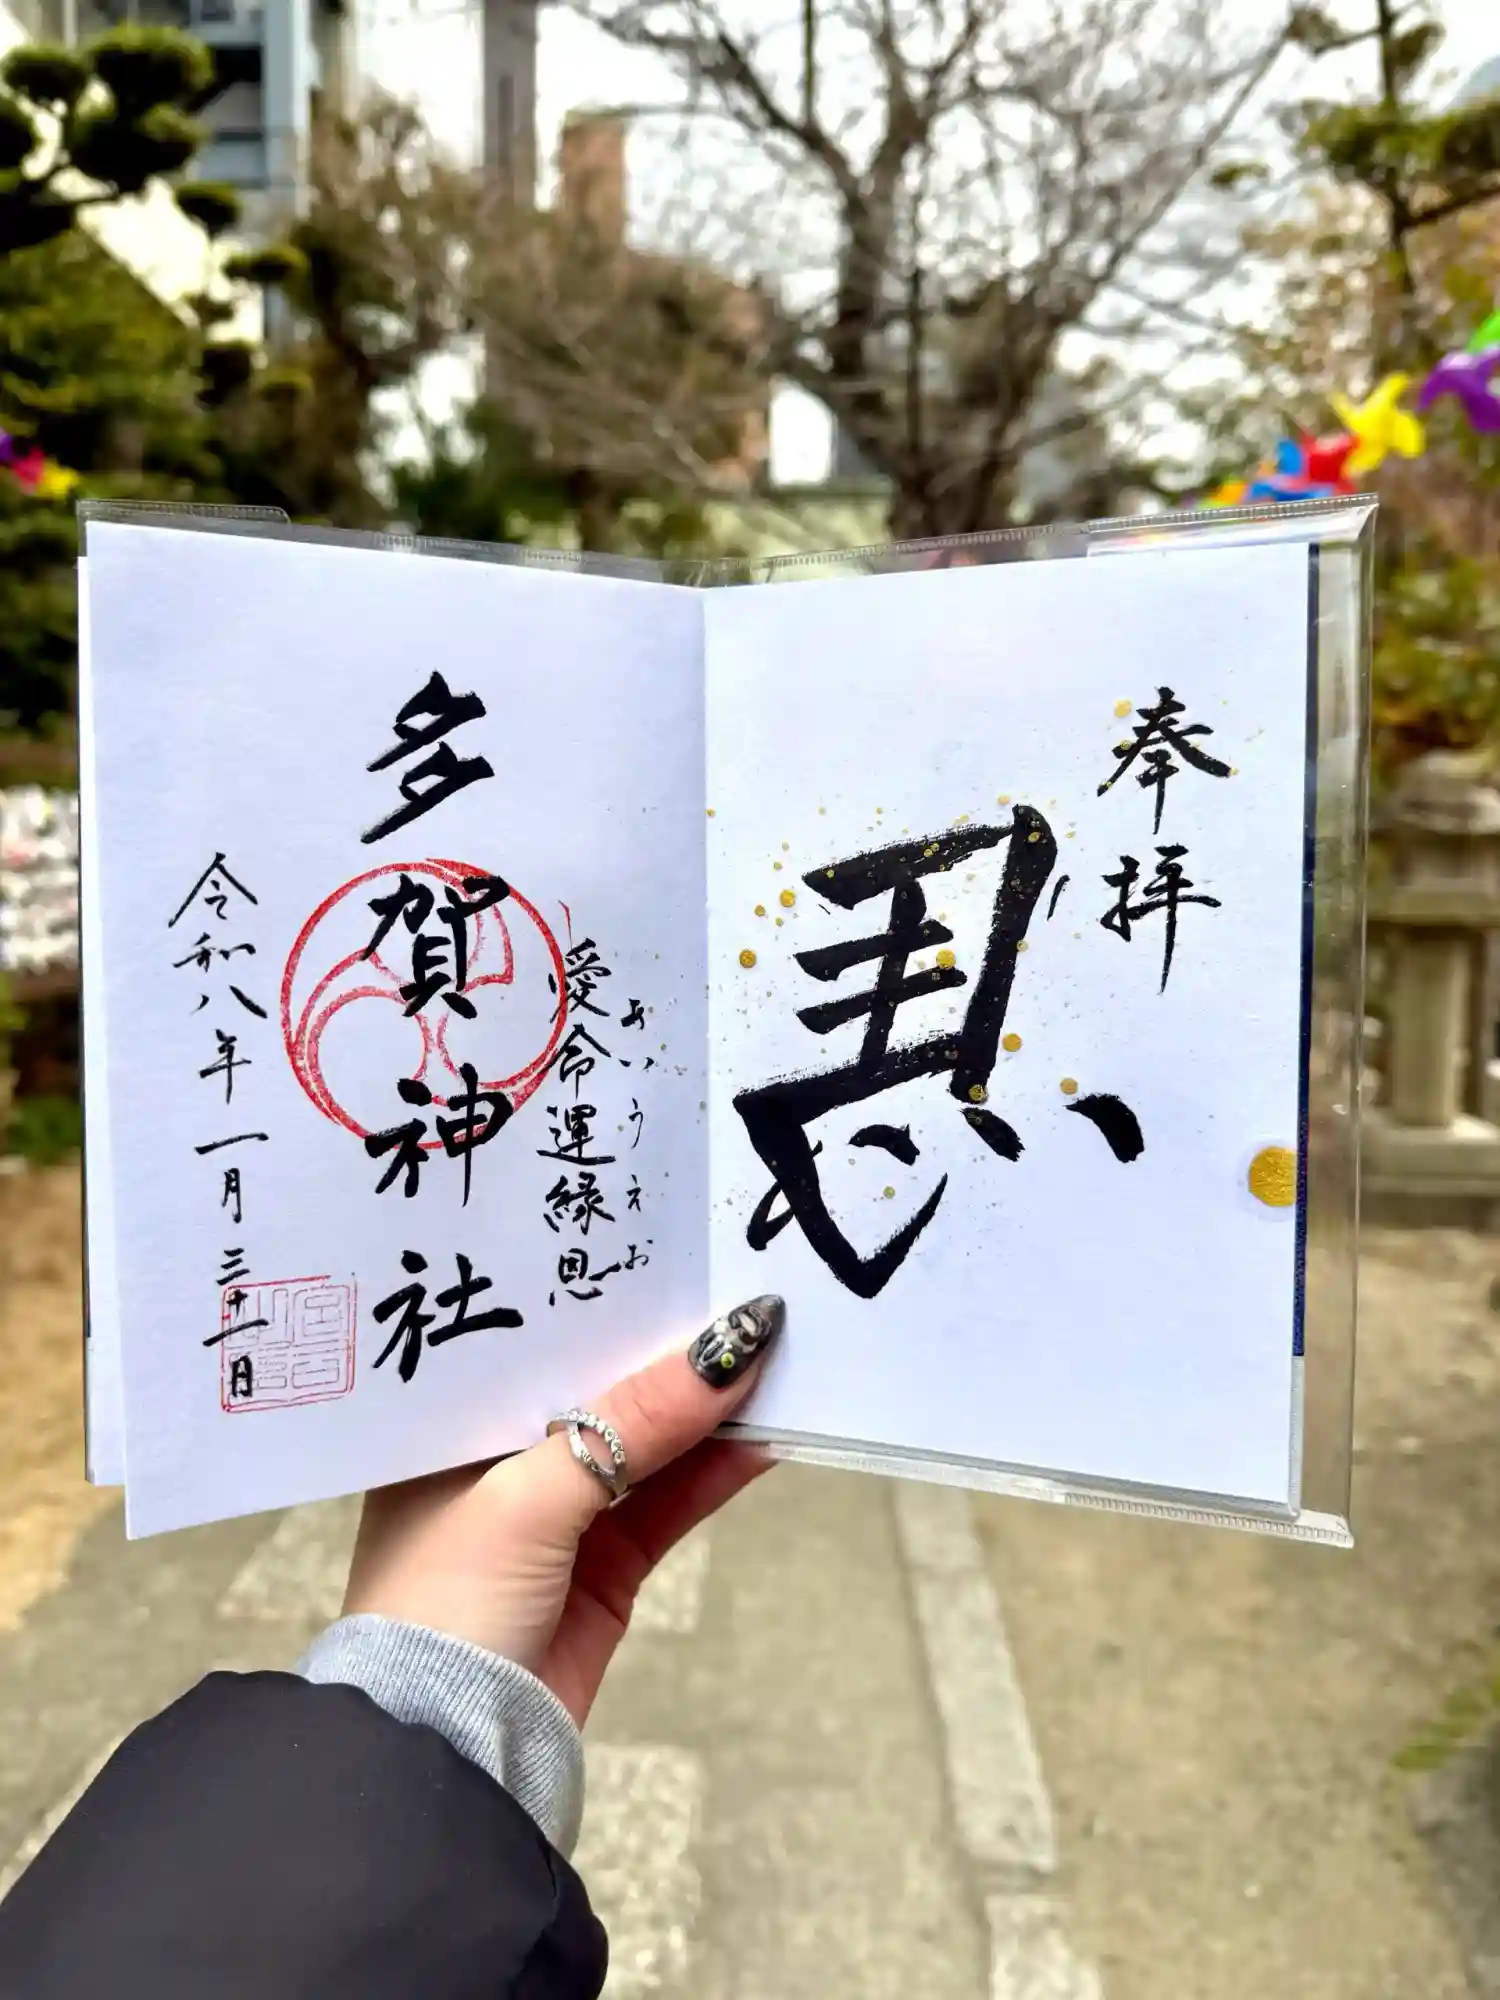 奉拝
恩
愛命運縁恩
あいうえお
多賀神社
令和八年一月三十一日